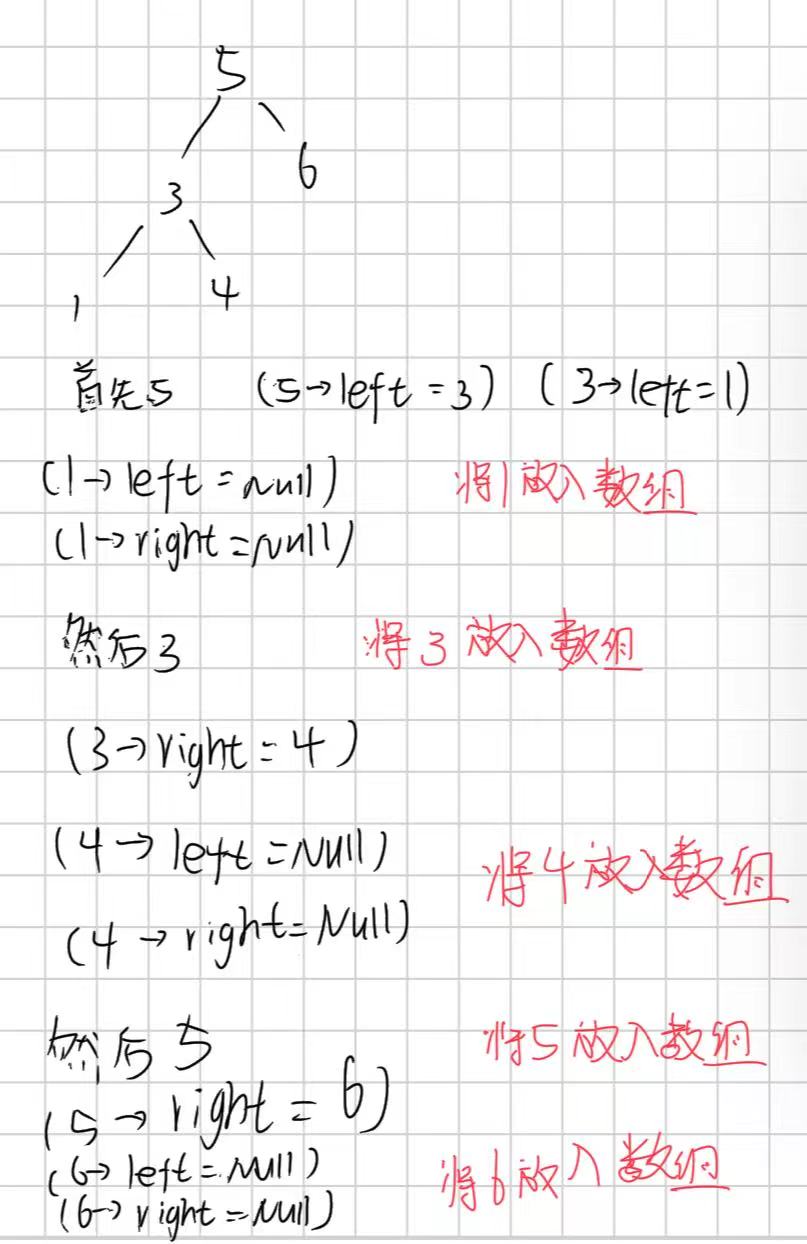 5
6
3
1 4
首先5 (5→left = 3) (3→left=1)
(1→left = Null) 将1放入数组
(1→right=Null)
然后3 将3放入数组
(3→right = 4)
(4→left=Null) 将4放入数组
(4→right=Null)
然后5 将5放入数组
(5→right = 6)
(6→left = Null) 将6放入数组
(6→right=Null)